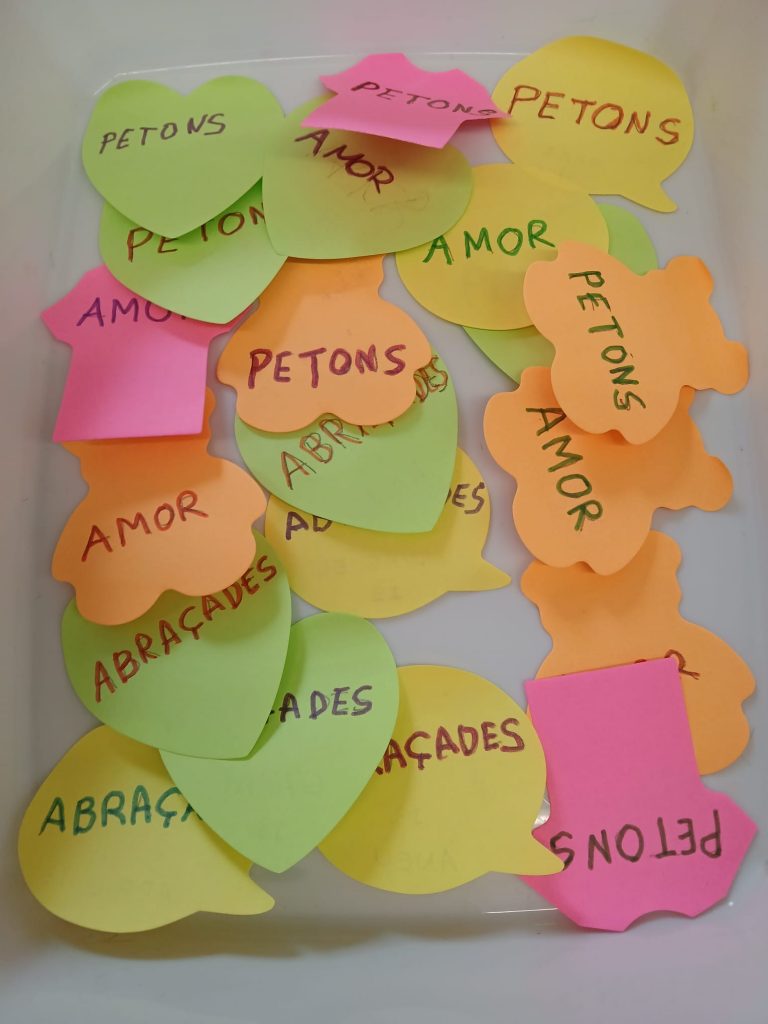 PETONS
PETONS
PETONS
AMOR
PETON
AMOR
AMO
PETONS
PETONS
ABRAÇADES
AMOR
AMOR
DES
ABRAÇADES
ADES
RAÇADES
ABRAÇA
PETONS